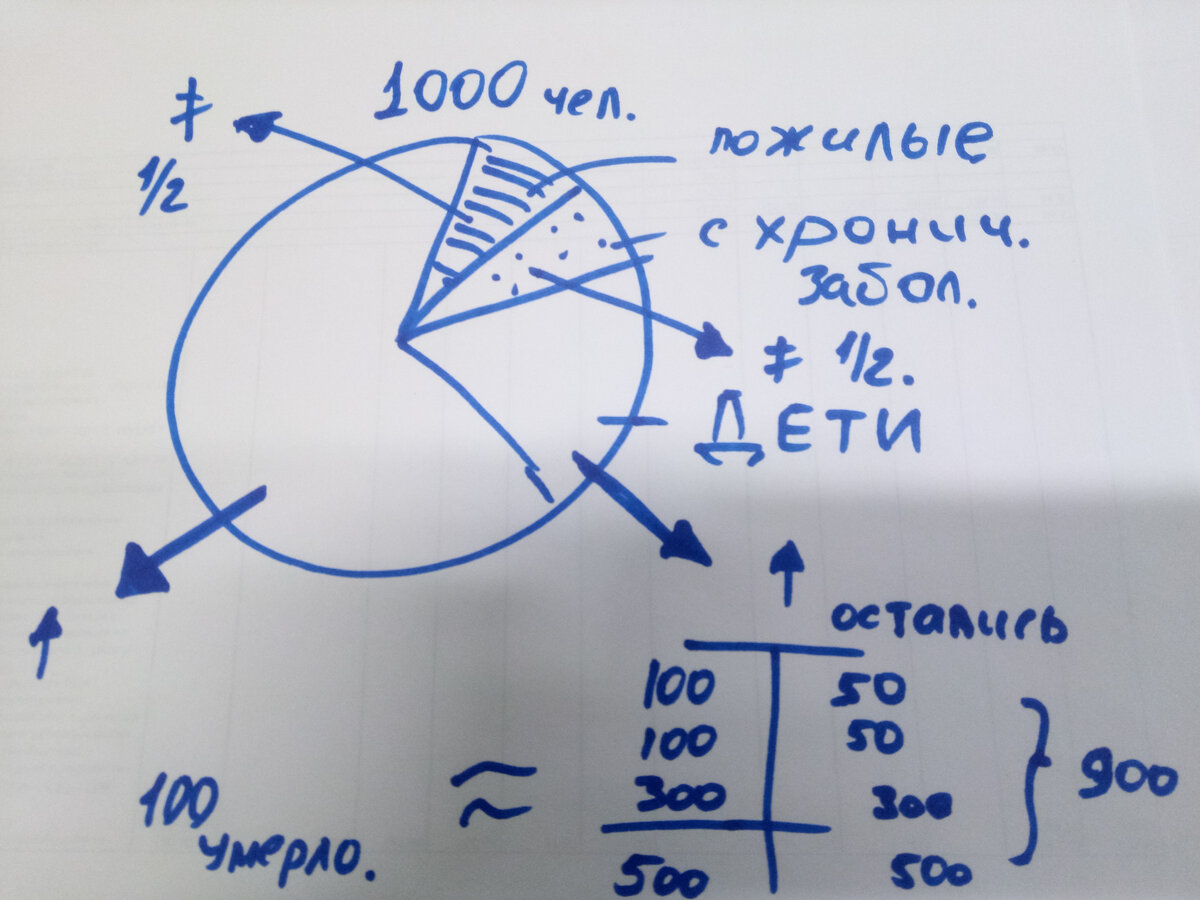 1000 чел.
‡
1/2
пожилые
с хронич.
забол.
‡ 1/2.
ДЕТИ
остались
100 50
100 50
300 300
500 500
900
100
умерло.
≈